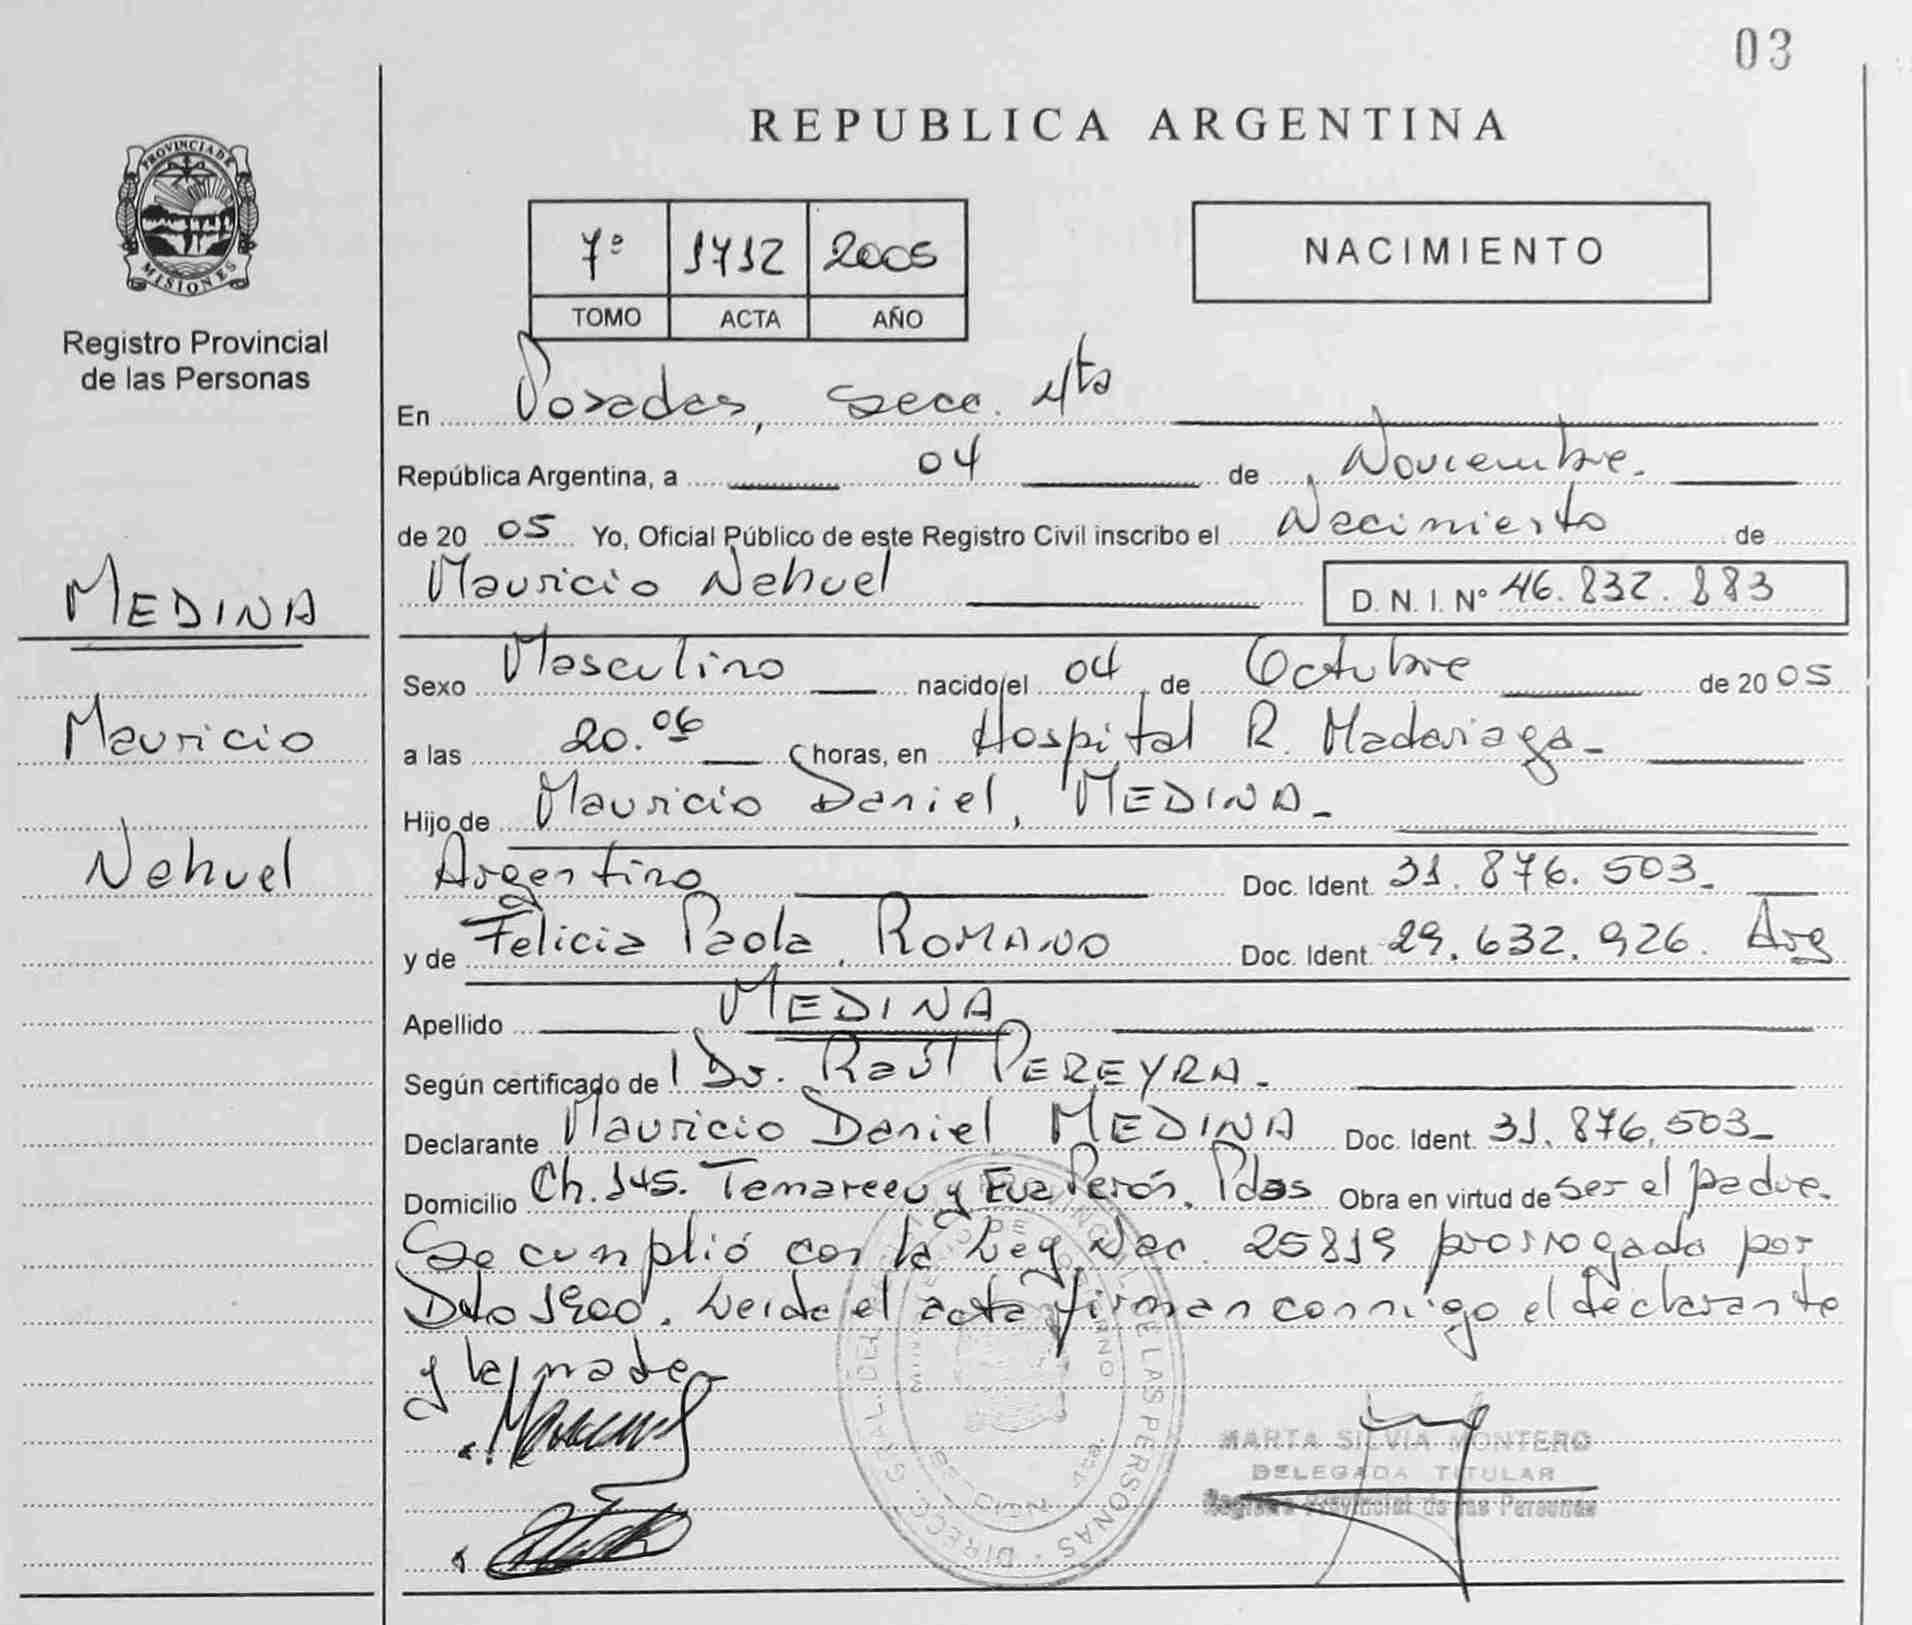 03
REPUBLICA ARGENTINA
PROVINCIA DE
MISIONES
Registro Provincial
de las Personas
7º 1712 2005
TOMO ACTA AÑO
NACIMIENTO
En Posadas, Secc. 4ta
República Argentina, a 04 de Noviembre.
de 20 05 Yo, Oficial Público de este Registro Civil inscribo el Nacimiento de
Mauricio Nahuel D. N. I. Nº 46.832.883
MEDINA
Mauricio
Nahuel
Sexo Masculino nacido el 04 de Octubre de 20 05
a las 20.06 horas, en Hospital R. Madariaga-
Hijo de Mauricio Daniel, MEDINA-
Argentino Doc. Ident. 31.876.503-
y de Felicia Paola, ROMANO Doc. Ident. 29.632.926. Arg
Apellido MEDINA
Según certificado de l Dr. Raúl PEREYRA-
Declarante Mauricio Daniel MEDINA Doc. Ident. 31.876.503-
Domicilio Ch. 145. y Eva Perón, Pdas Obra en virtud de ser el padre.
Se cumplió con la Ley Nac. 25819 prorrogada por
Dto 1900. Leida el acta firman conmigo el declarante
y la madre
MARTA SILVIA MONTERO
DELEGADA TITULAR
Registro Provincial de las Personas